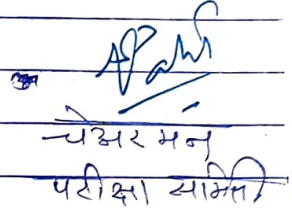 चेअरमन
परीक्षा समिती